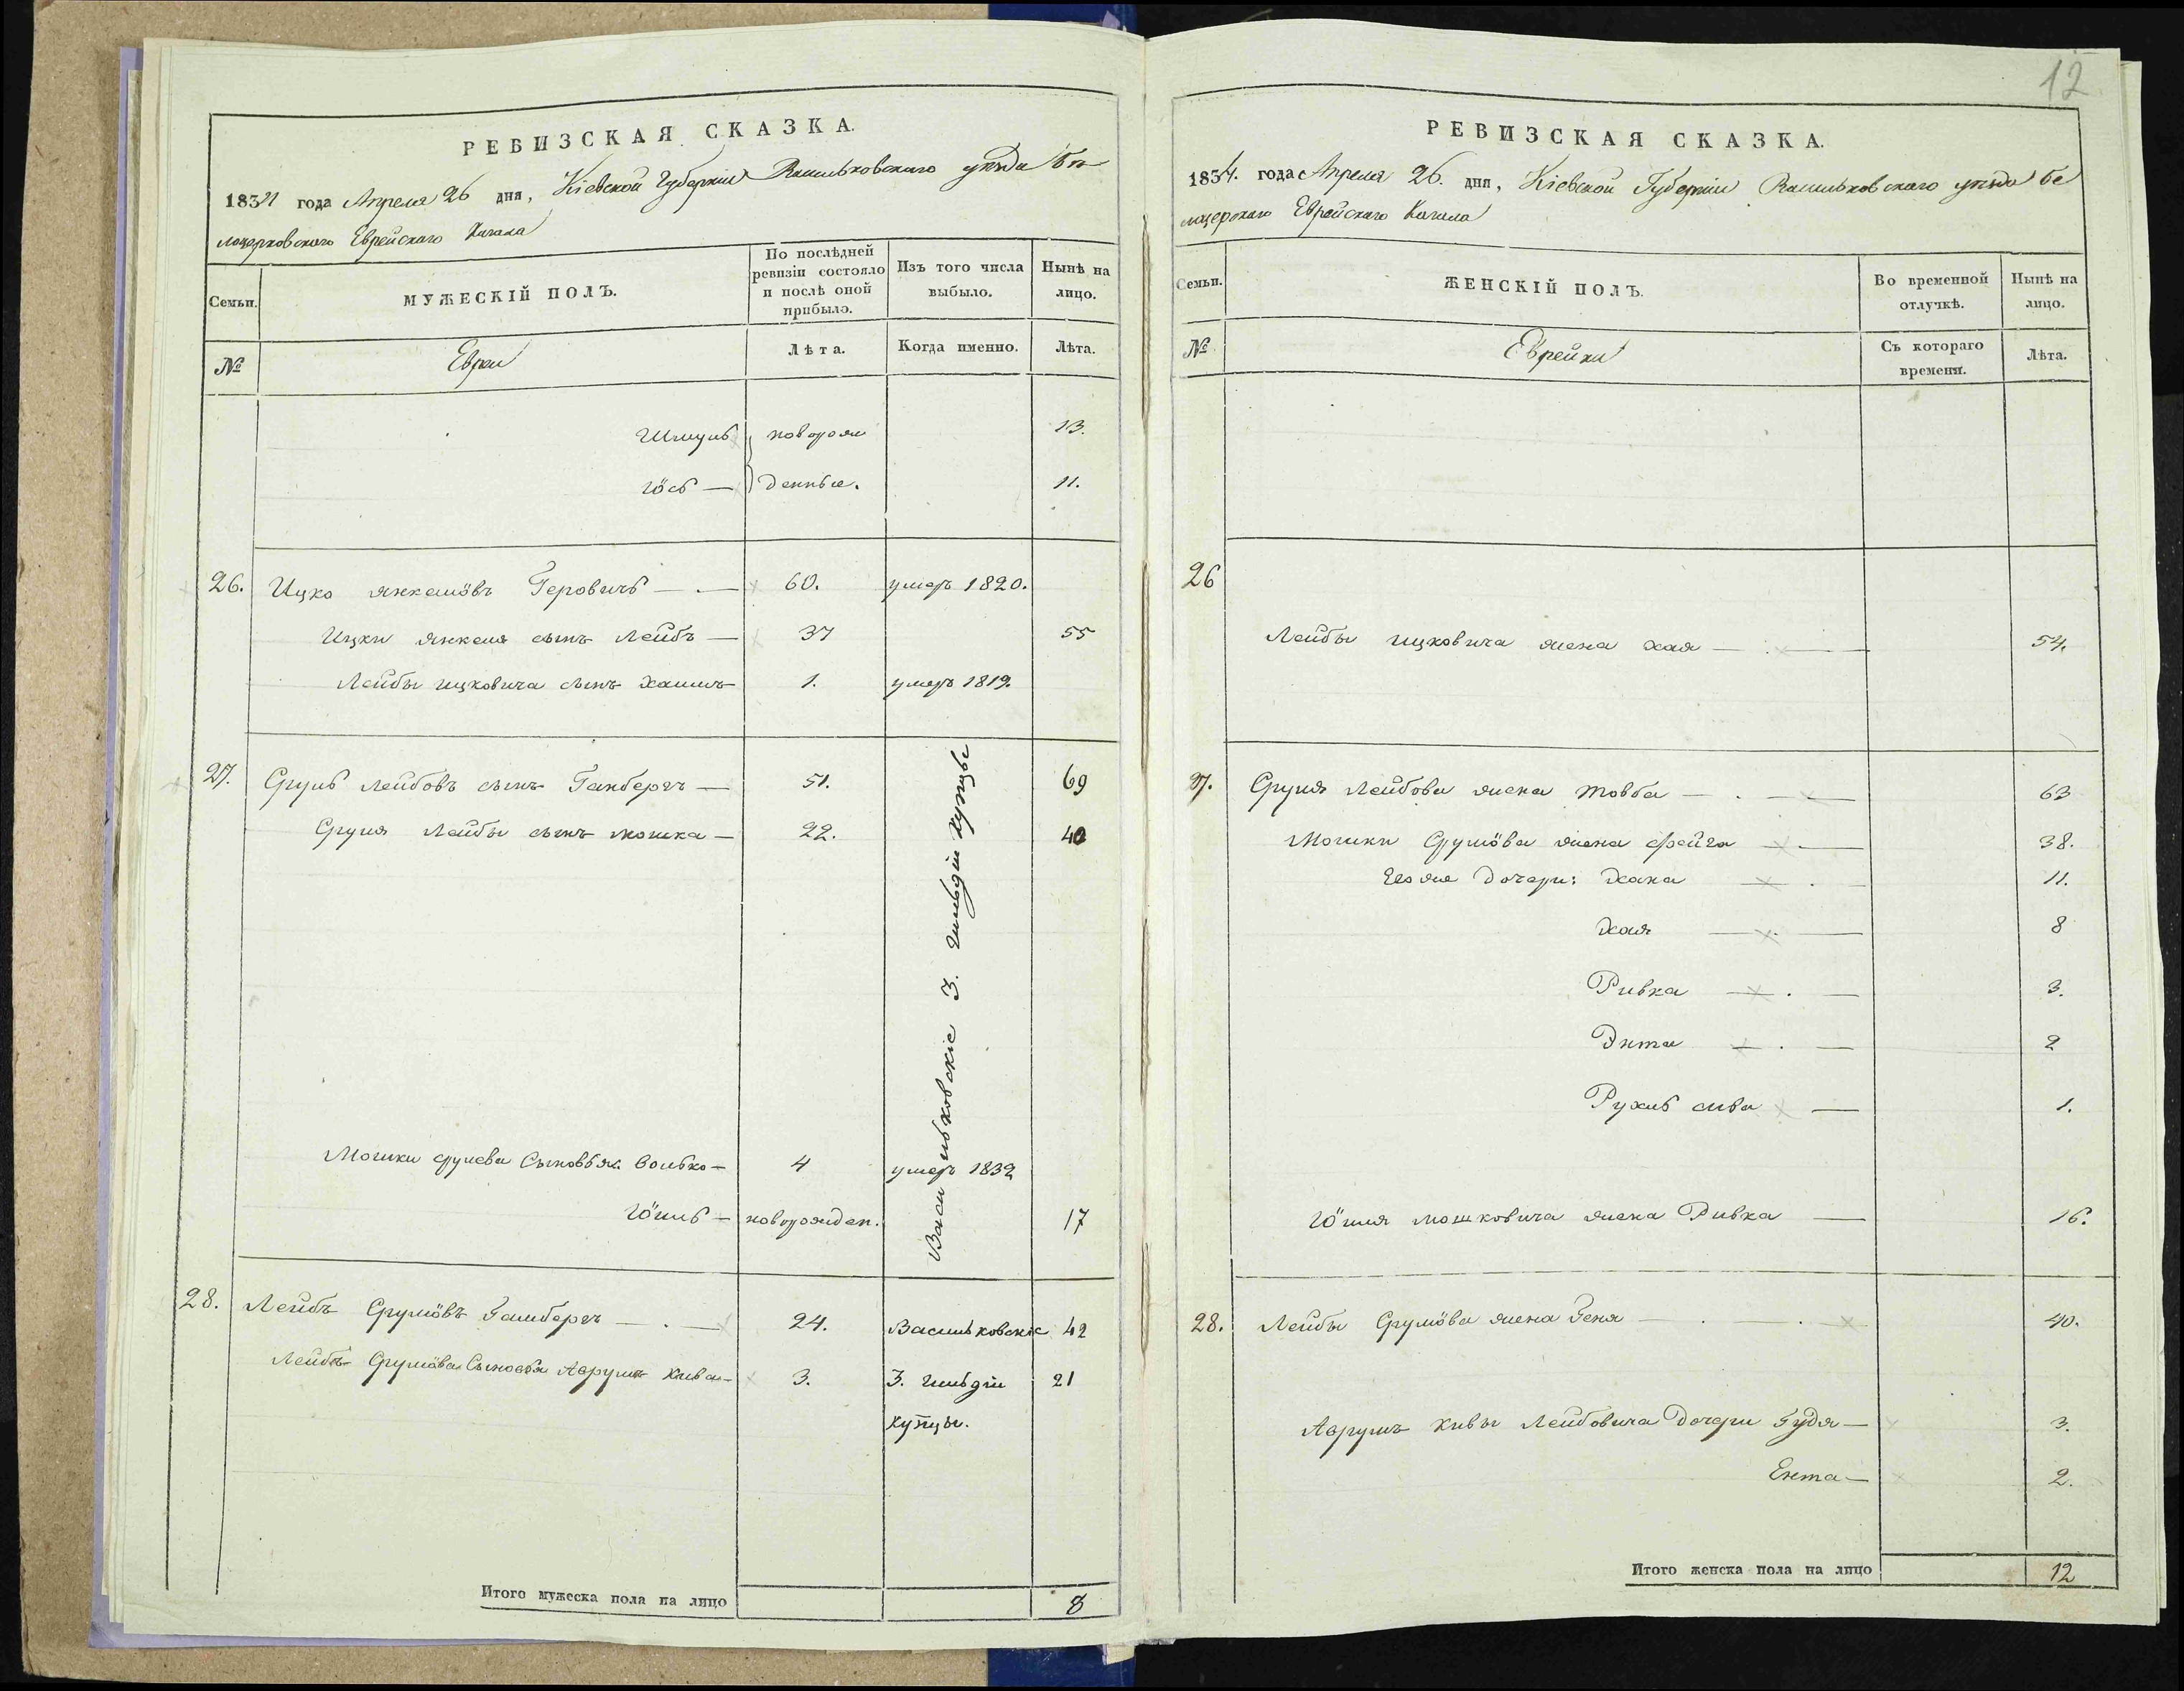 РЕВИЗСКАЯ СКАЗКА.
1834 года Апреля 26 дня, Кіевской Губерніи Васильковскаго уѣзда Бѣ
лоцерковского Еврейскаго Кагала
Семьи. МУЖЕСКІЙ ПОЛЪ. По послѣдней ревизіи состояло и послѣ оной прибыло. Изъ того числа выбыло. Нынѣ на лицо.
№ Евреи Лѣта. Когда именно. Лѣта.
Шмуль новорож 13.
Іось — денные. 11.
26. Ицко Янкелёвъ Геровичъ — 60. умеръ 1820.
Ицки Янкеля сынъ Лейбъ — 37 55
Лейбы Ицковича сынъ Хаимъ 1. умеръ 1819.
27. Сруль Лейбовъ сынъ Гамбергъ — 51. 69
Сруля Лейбы сынъ Мошка — 22. 40
Васильковскіе 3. гильдіи купцы
Мошки Срулева Сыновья Волько — 4 умеръ 1832
Іошъ — новорожден. 17
28. Лейбъ Срулёвъ Гамбергъ — 24. Васильковскіе 42
Лейбъ Срулёва Сыновья Аврумъ Кива — 3. 3. гильдіи 21
купцы.
Итого мужеска пола на лицо 8
12
РЕВИЗСКАЯ СКАЗКА.
1834. года Апреля 26. дня, Кіевской Губерніи Васильковскаго уѣзда Бе
Еврейскаго Кагала
Семьи. ЖЕНСКІЙ ПОЛЪ. Во временной отлучкѣ. Нынѣ на лицо.
№ Еврейки Съ котораго времени. Лѣта.
26
Лейбы Ицковича жена Хая — 54.
27. Сруля Лейбова жена Товба — 63
Мошки Срулёва жена Фейга — 38.
Его же Дочери: Хана — 11.
Хая — 8
Ривка — 3.
Энта — 2
Рухль 1.
мошковича жена Ривка — 16.
28. Лейбы Срулёва жена Геня — 40.
Аврумъ Кивы Лейбовича Дочери Гудя — 3.
Ента — 2.
Итого женска пола на лицо 12